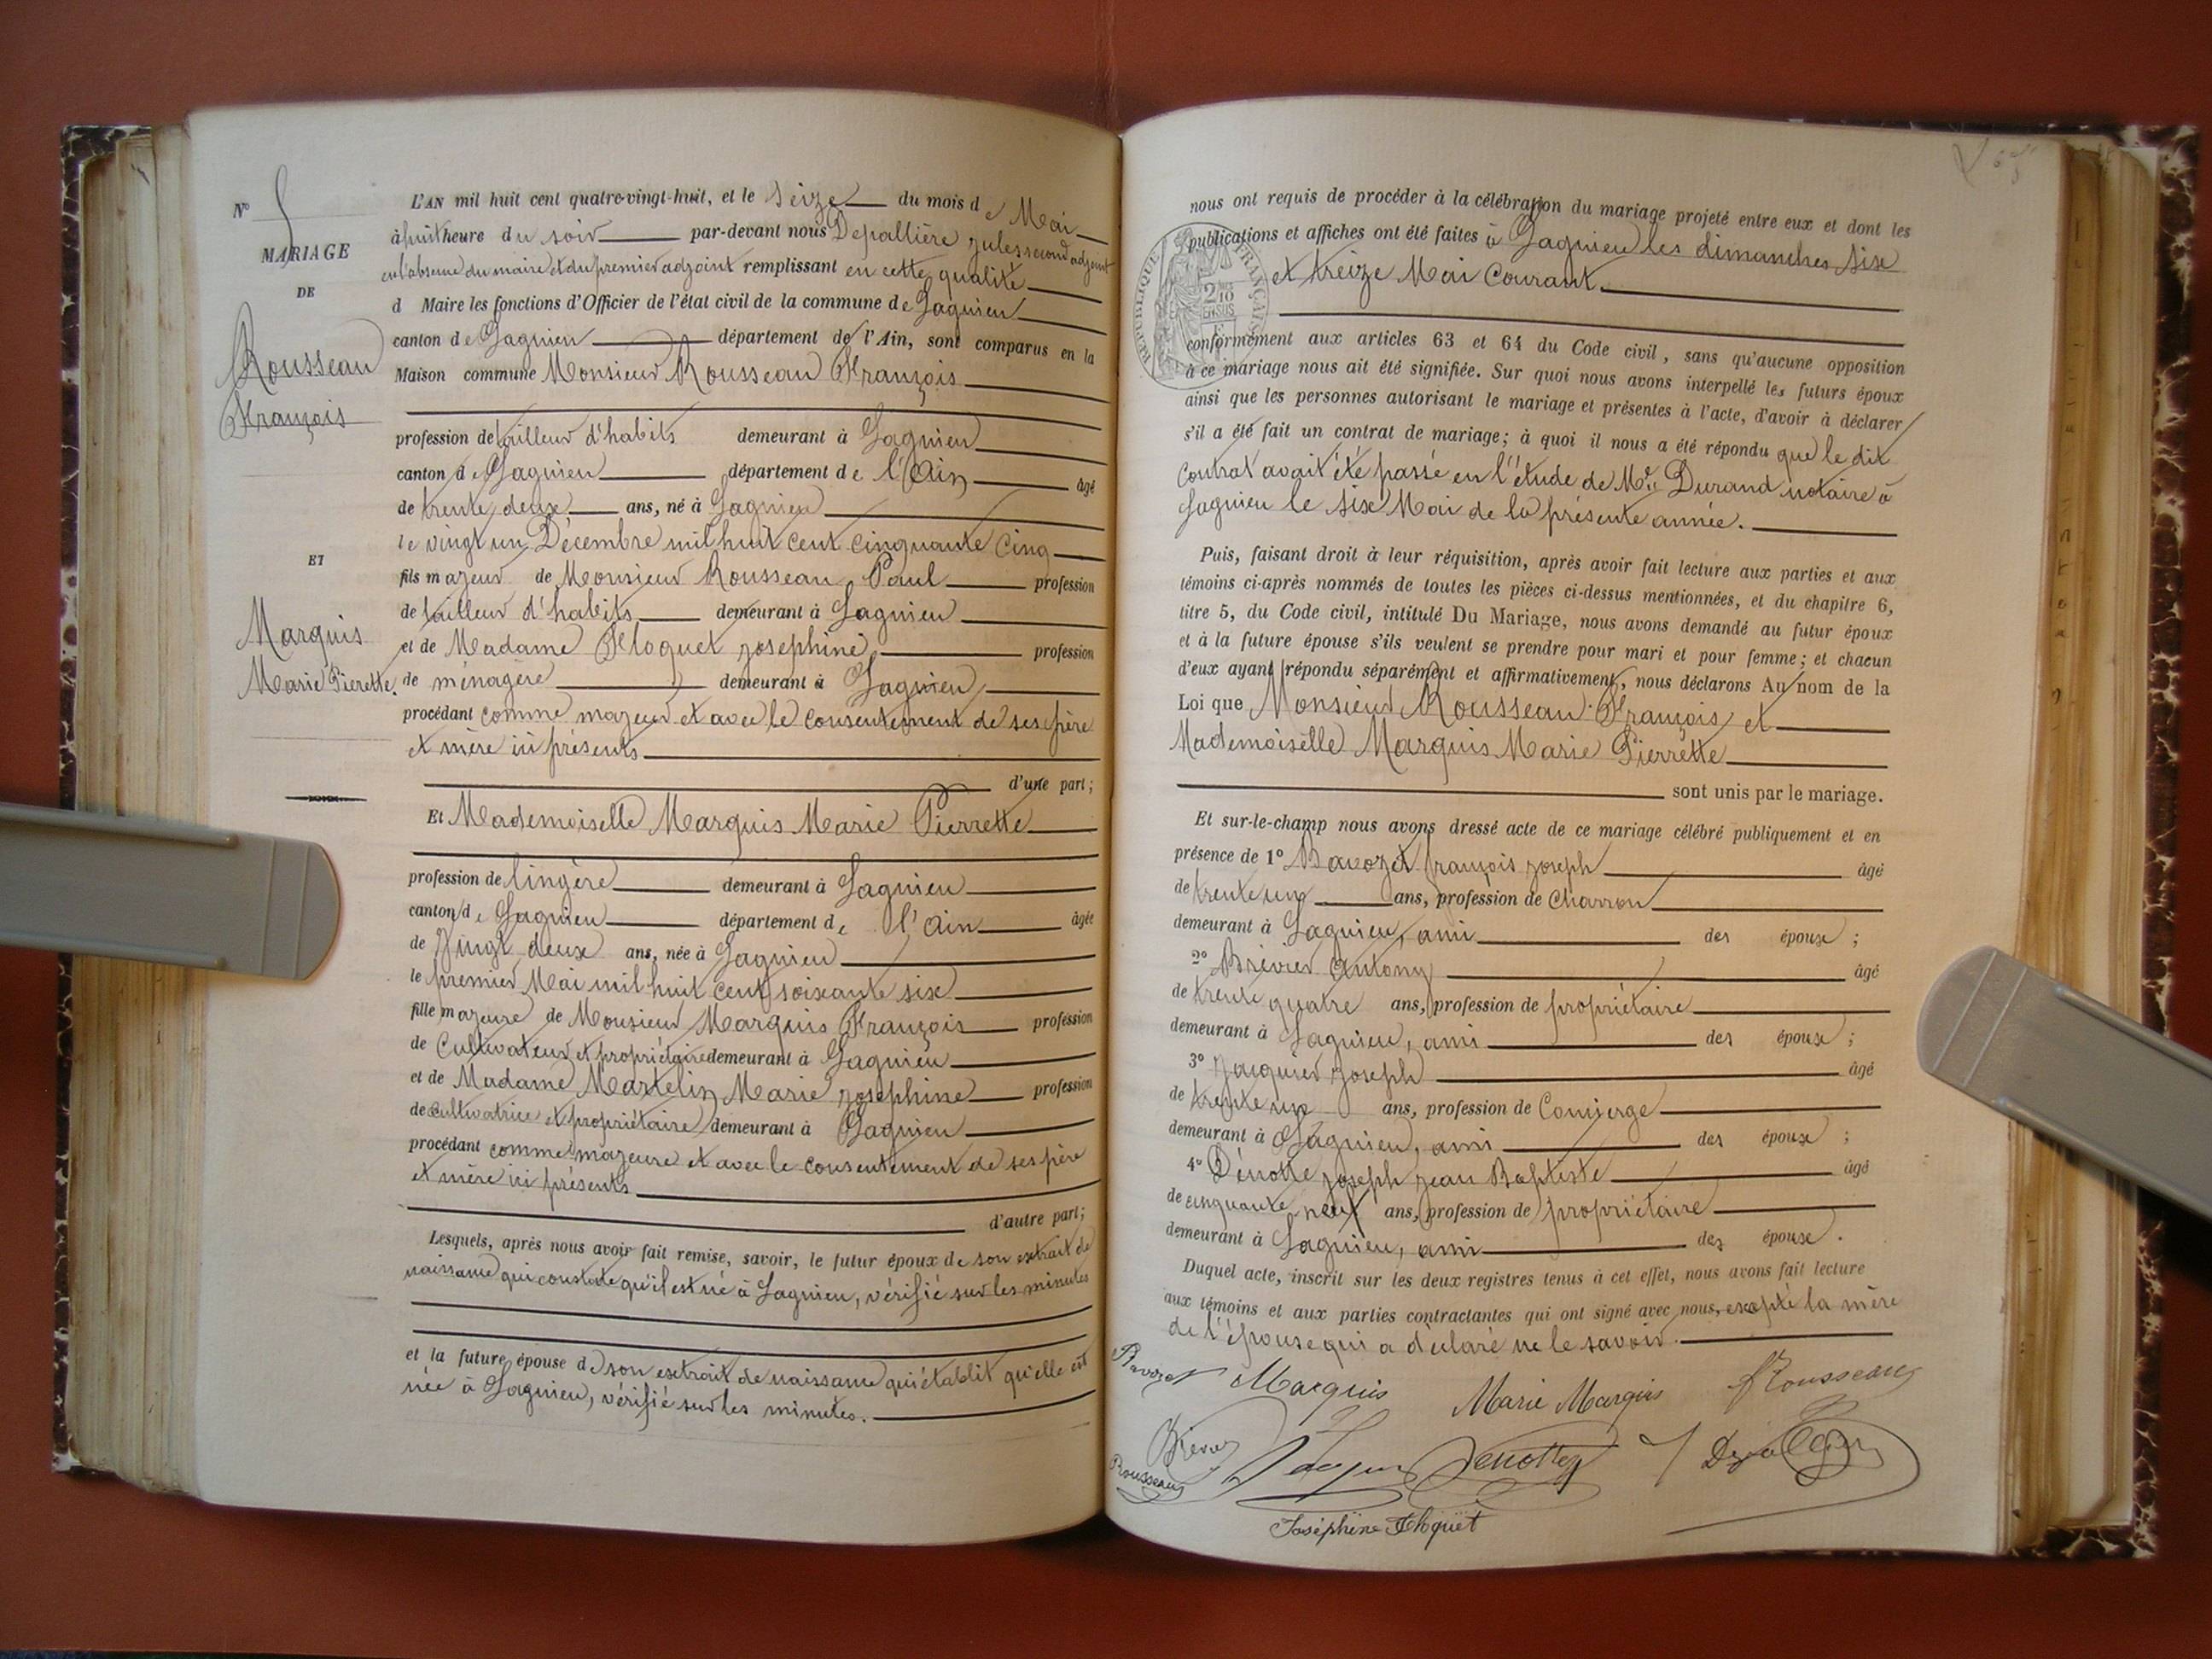 N° 5
MARIAGE
DE
Rousseau
François
ET
Marquis
Marie Pierrette.
L'AN mil huit cent quatre-vingt-huit, et le seize du mois de Mai
à huit heure du soir par-devant nous Depallière Jules second adjoint
en l'absence du maire et du premier adjoint remplissant en cette qualité
d Maire les fonctions d'Officier de l'état civil de la commune de Lagnieu
canton de Lagnieu département de l'Ain, sont comparus en la
Maison commune Monsieur Rousseau François
profession de tailleur d'habits demeurant à Lagnieu
canton de Lagnieu département de l'Ain âgé
de trente deux ans, né à Lagnieu
le vingt un Décembre mil huit cent cinquante cinq
fils majeur de Monsieur Rousseau Paul profession
de tailleur d'habits demeurant à Lagnieu
et de Madame Floquet Josephine profession
de ménagère demeurant à Lagnieu
procédant comme majeur et avec le consentement de ses père
et mère ici présents
d'une part;
Et Mademoiselle Marquis Marie Pierrette
profession de lingère demeurant à Lagnieu
canton de Lagnieu département de l'Ain âgée
de Vingt deux ans, née à Lagnieu
le premier Mai mil huit cent soixante six
fille majeure de Monsieur Marquis François profession
de Cultivateur et propriétaire demeurant à Lagnieu
et de Madame Martelin Marie Josephine profession
de cultivatrice et propriétaire demeurant à Lagnieu
procédant comme majeure et avec le consentement de ses père
et mère ici présents
d'autre part;
Lesquels, après nous avoir fait remise, savoir, le futur époux de son extrait de
naissance qui constate qu'il est né à Lagnieu, vérifié sur les minutes
et la future épouse de son extrait de naissance qui établit qu'elle est
née à Lagnieu, vérifié sur les minutes.
nous ont requis de procéder à la célébration du mariage projeté entre eux et dont les
publications et affiches ont été faites à Lagnieu les dimanches six
et treize Mai Courant.
RÉPUBLIQUE FRANÇAISE
2/10 EN SUS
conformément aux articles 63 et 64 du Code civil, sans qu'aucune opposition
à ce mariage nous ait été signifiée. Sur quoi nous avons interpellé les futurs époux
ainsi que les personnes autorisant le mariage et présentes à l'acte, d'avoir à déclarer
s'il a été fait un contrat de mariage; à quoi il nous a été répondu que le dit
Contrat avait été passé en l'étude de Me Durand notaire à
Lagnieu le six Mai de la présente année.
Puis, faisant droit à leur réquisition, après avoir fait lecture aux parties et aux
témoins ci-après nommés de toutes les pièces ci-dessus mentionnées, et du chapitre 6,
titre 5, du Code civil, intitulé Du Mariage, nous avons demandé au futur époux
et à la future épouse s'ils veulent se prendre pour mari et pour femme; et chacun
d'eux ayant répondu séparément et affirmativement, nous déclarons Au nom de la
Loi que Monsieur Rousseau François et
Mademoiselle Marquis Marie Pierrette
sont unis par le mariage.
Et sur-le-champ nous avons dressé acte de ce mariage célébré publiquement et en
présence de 1° Bavozet françois Joseph âgé
de trente un ans, profession de Charron
demeurant à Lagnieu, ami des époux;
2° Brévier Antony âgé
de trente quatre ans, profession de propriétaire
demeurant à Lagnieu, ami des époux;
3° Jacquier Joseph âgé
de trente un ans, profession de Concierge
demeurant à Lagnieu, ami des époux;
4° Dénotte Joseph Jean Baptiste âgé
de cinquante neuf ans, profession de propriétaire
demeurant à Lagnieu, ami des époux.
Duquel acte, inscrit sur les deux registres tenus à cet effet, nous avons fait lecture
aux témoins et aux parties contractantes qui ont signé avec nous, excepté la mère
de l'épouse qui a déclaré ne le savoir.
Bavozet Marquis Marie Marquis Rousseau
Rousseau Denotte
Joséphine Floquet